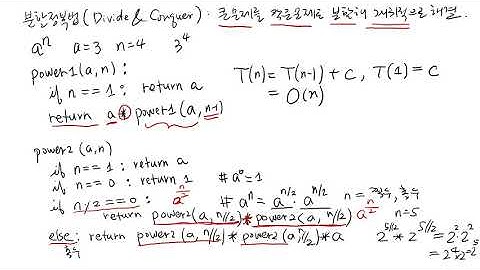 분할정복법 (Divide & Conquer) : 큰 문제를 작은 문제로 분할해 재귀적으로 해결.
aⁿ a=3 n=4 3⁴
power1(a,n) :
if n == 1 : return a
return a * power1(a, n-1)
T(n) = T(n-1) + c, T(1) = c
= O(n)
power2(a,n)
if n == 1 : return a
if n == 0 : return 1 # a⁰=1
if n%2 == 0 : # aⁿ = a^(n/2) · a^(n/2) n = 짝수, 홀수
return power2(a, n//2) * power2(a, n//2) n=5
else : return power2(a, n//2) * power2(a, n//2) * a
홀수
2^(5//2) * 2^(5//2) = 2²·2²
= 2⁴·2 = 2⁵